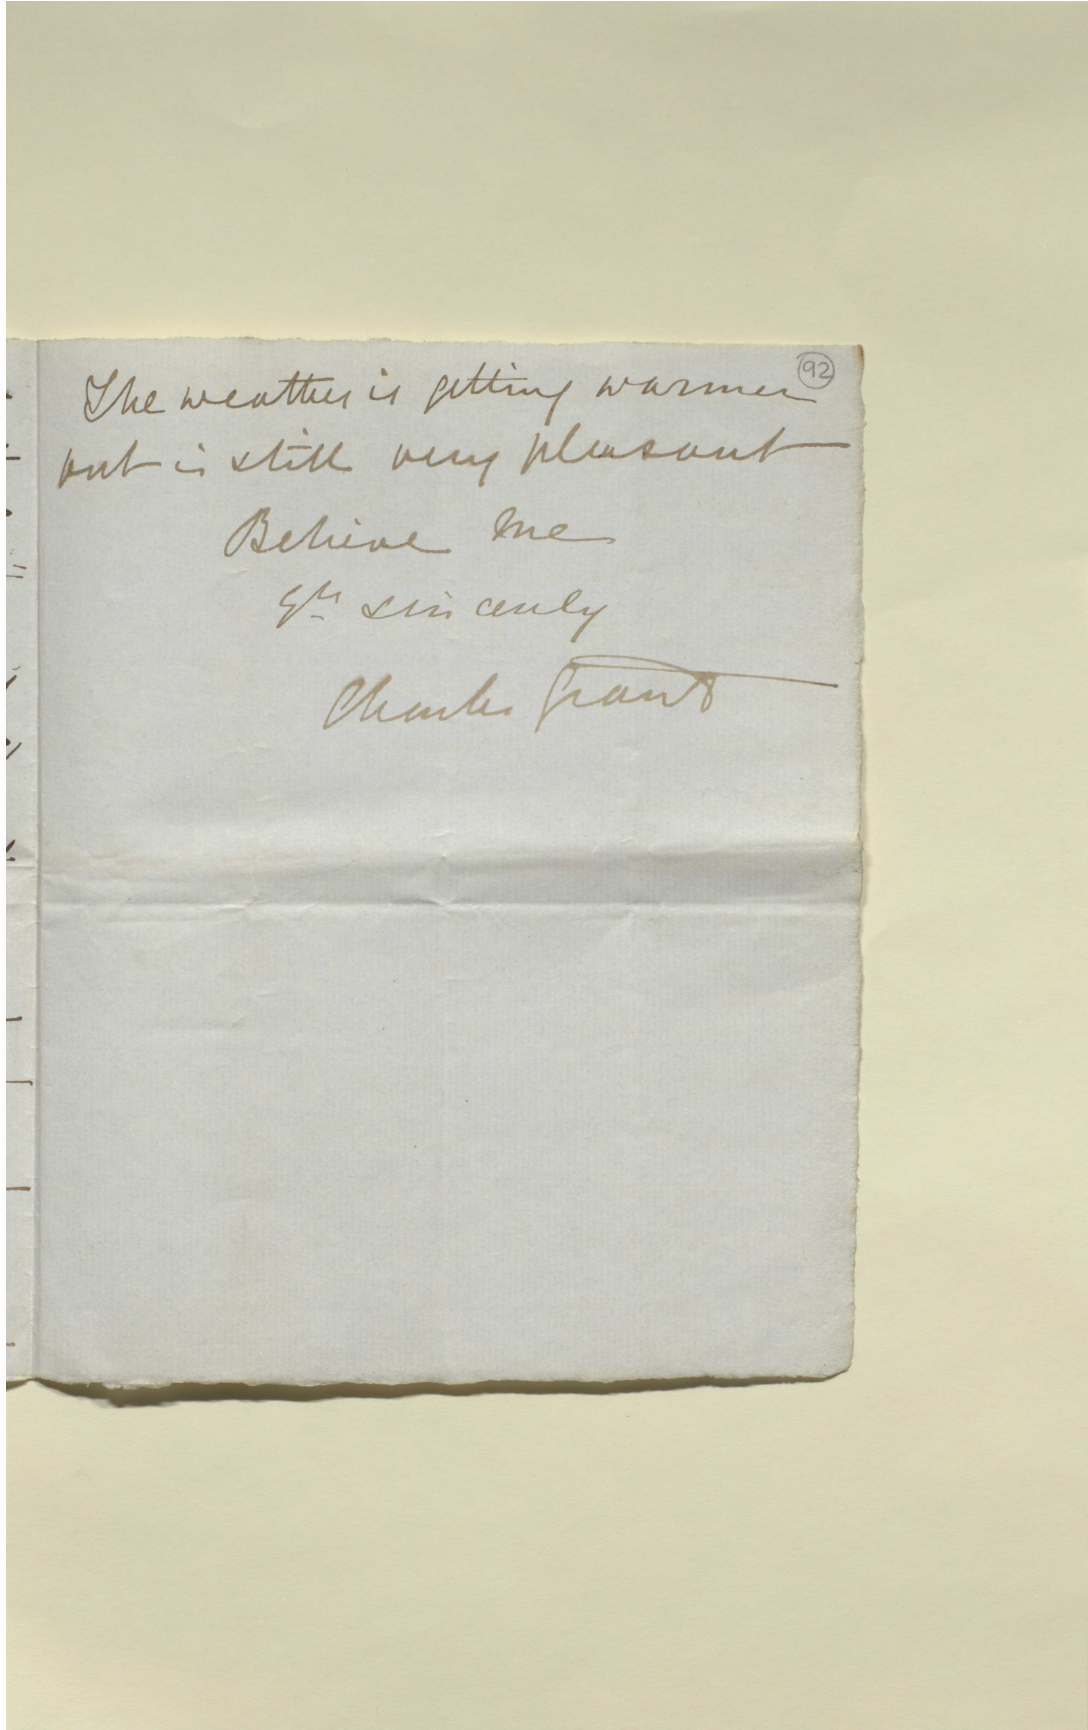 92
The weather is getting warmer
but is still very pleasant
Believe me
Yrs sincerely
Charles Grant